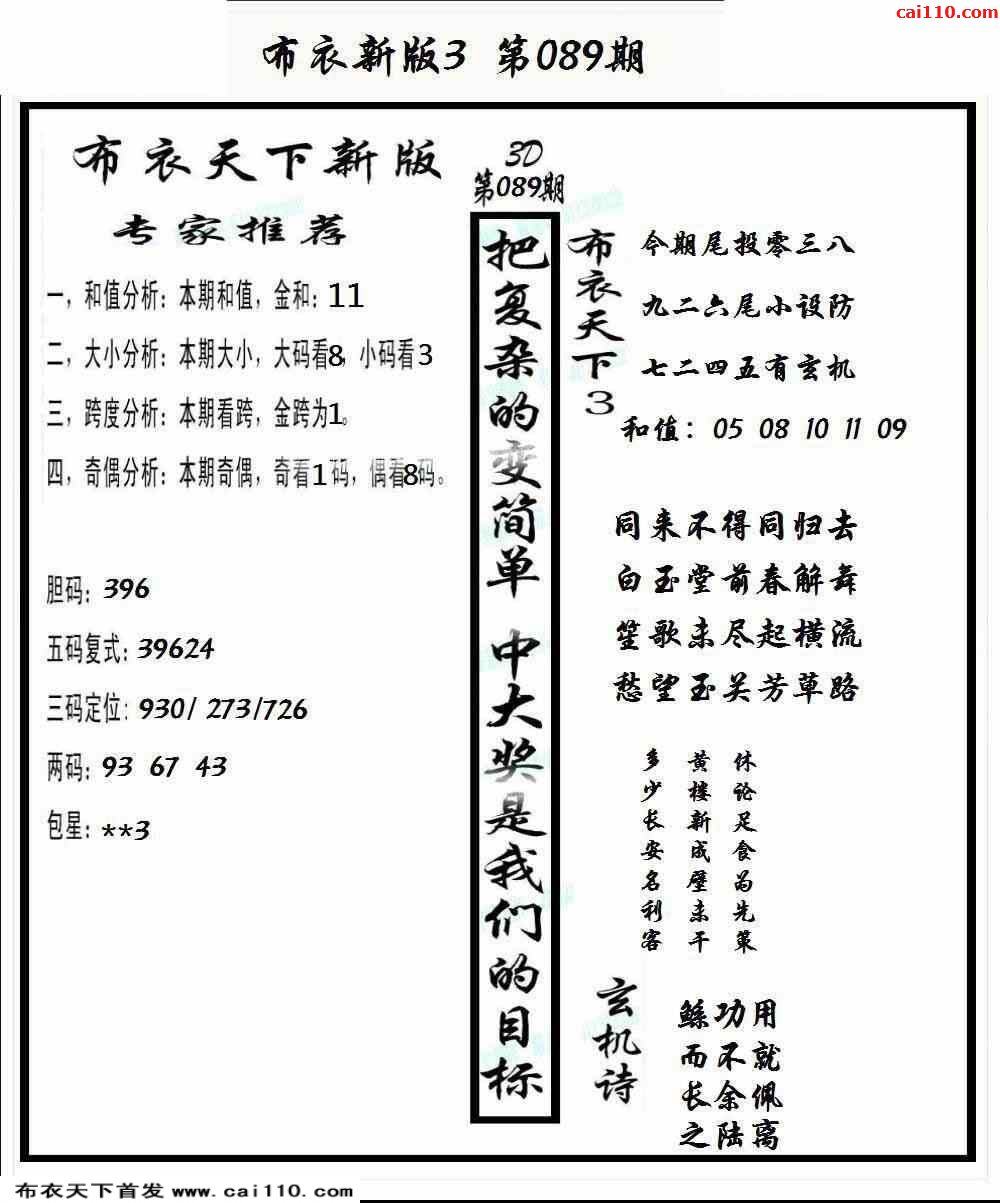 cai110.com
布衣新版3 第089期
布衣天下新版
专家推荐
一，和值分析：本期和值，金和：11
二，大小分析：本期大小，大码看8，小码看3
三，跨度分析：本期看跨，金跨为1。
四，奇偶分析：本期奇偶，奇看1码，偶看8码。
胆码：396
五码复式：39624
三码定位：930/ 273/726
两码：93 67 43
包星：**3
3D
第089期
把复杂的变简单 中大奖是我们的目标
布衣天下3
今期尾投零三八
九二六尾小设防
七二四五有玄机
和值：05 08 10 11 09
同来不得同归去
白玉堂前春解舞
笙歌未尽起横流
愁望玉关芳草路
休论足食为先策
黄楼新成壁未干
多少长安名利客
玄机诗
鲧功用
而不就
长余佩
之陆离
布衣天下首发 www.cai110.com